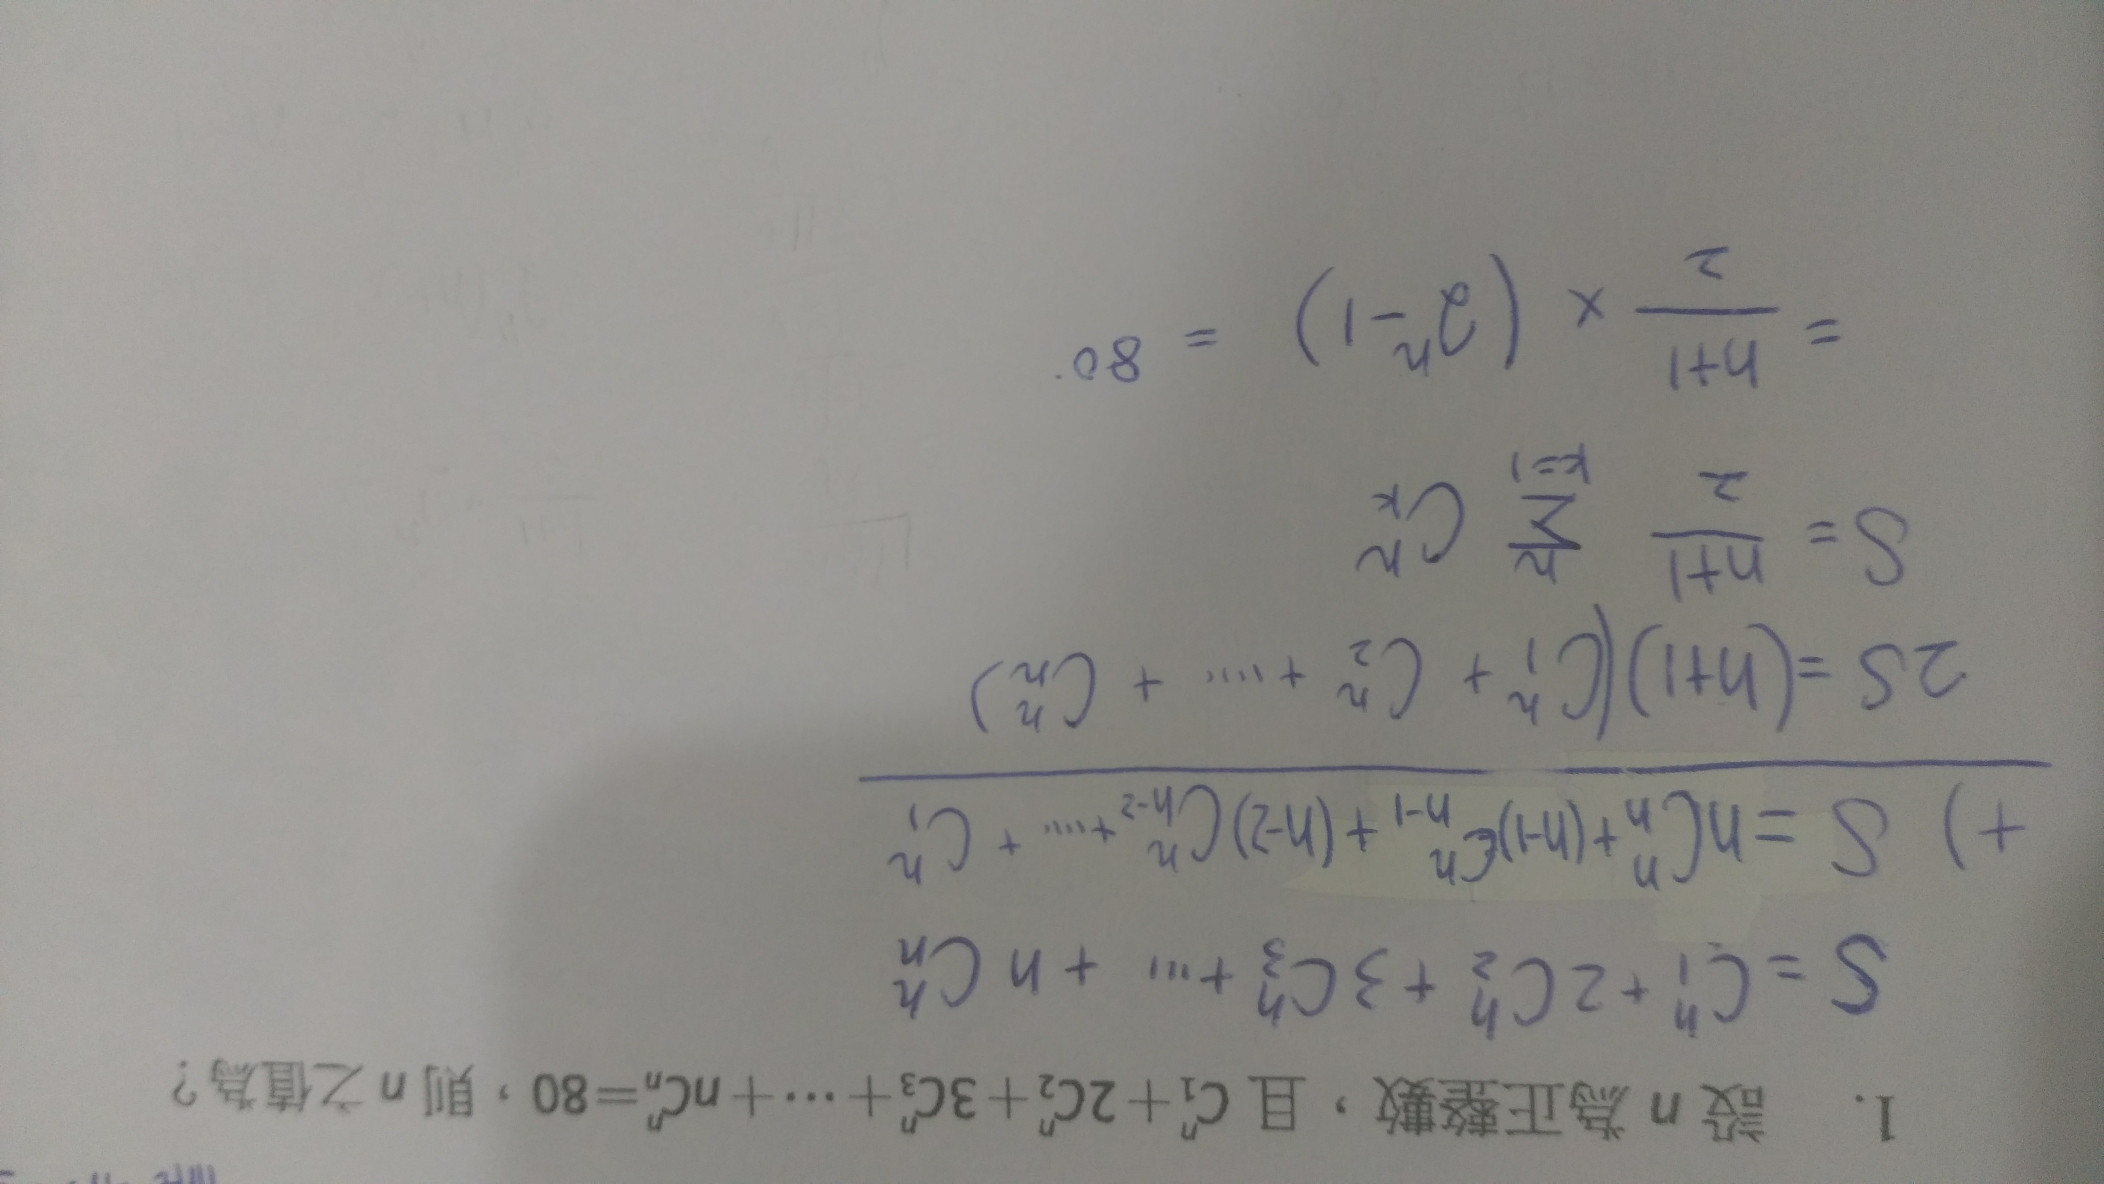 1. 設 n 為正整數，且 C₁ⁿ+2C₂ⁿ+3C₃ⁿ+⋯+nCₙⁿ=80，則 n 之值為？
S = C₁ⁿ + 2C₂ⁿ + 3C₃ⁿ + ⋯ + nCₙⁿ
+) S = nCₙⁿ + (n-1)Cₙ₋₁ⁿ + (n-2)Cₙ₋₂ⁿ + ⋯ + C₁ⁿ
2S = (n+1)(C₁ⁿ + C₂ⁿ + ⋯ + Cₙⁿ)
S = (n+1)/2 Σₖ₌₁ⁿ Cₖⁿ
= (n+1)/2 × (2ⁿ-1) = 80.